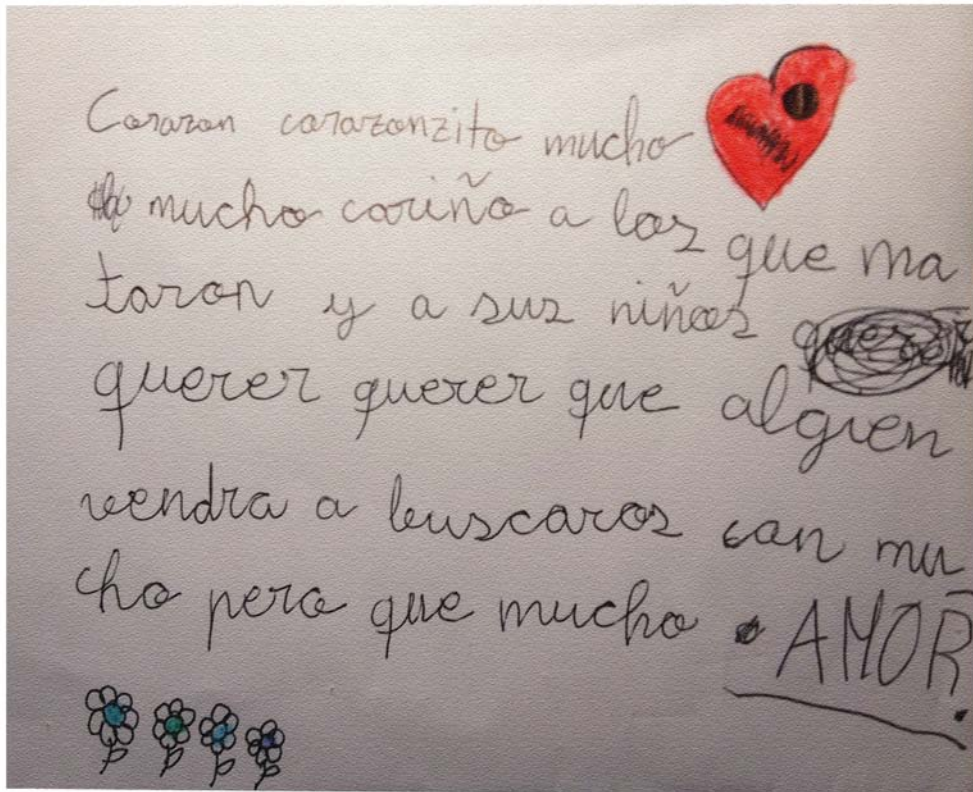 Corazon corazonzito mucho
mucho cariño a los que ma
taron y a sus niños
querer querer que algien
vendra a buscaros con mu
cho pero que mucho
AMOR